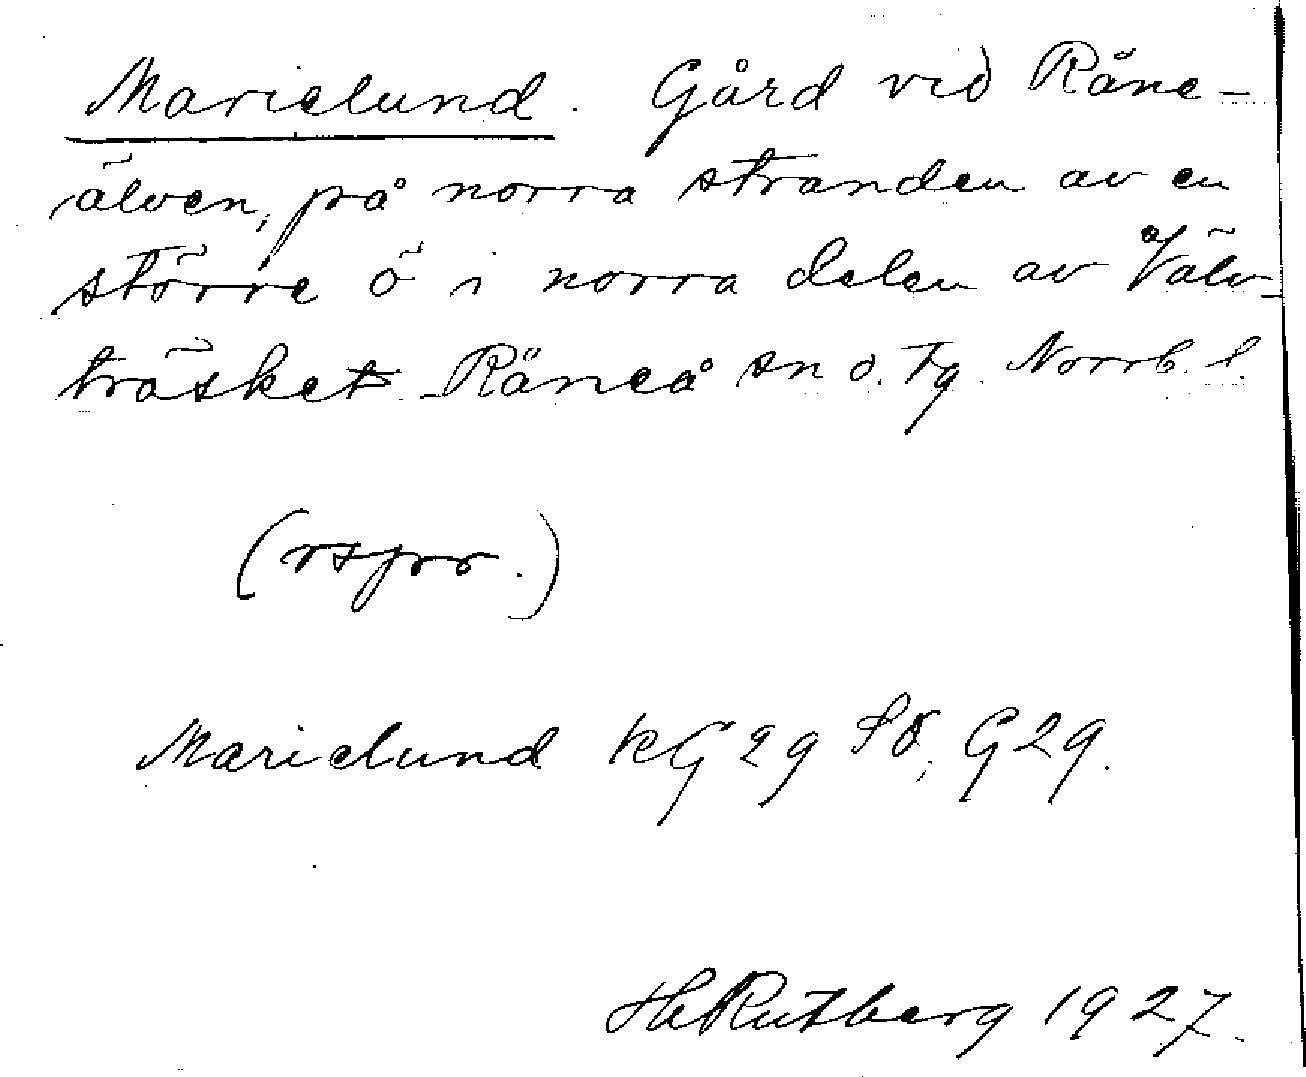 Marielund. Gård vid Råne-
älven, på norra stranden av en
större ö i norra delen av Väln-
träsket Råneå sn o. tg. Norrb. l.
(rspr.)
Marielund kG29 SO; G29.
Rutberg 1927.